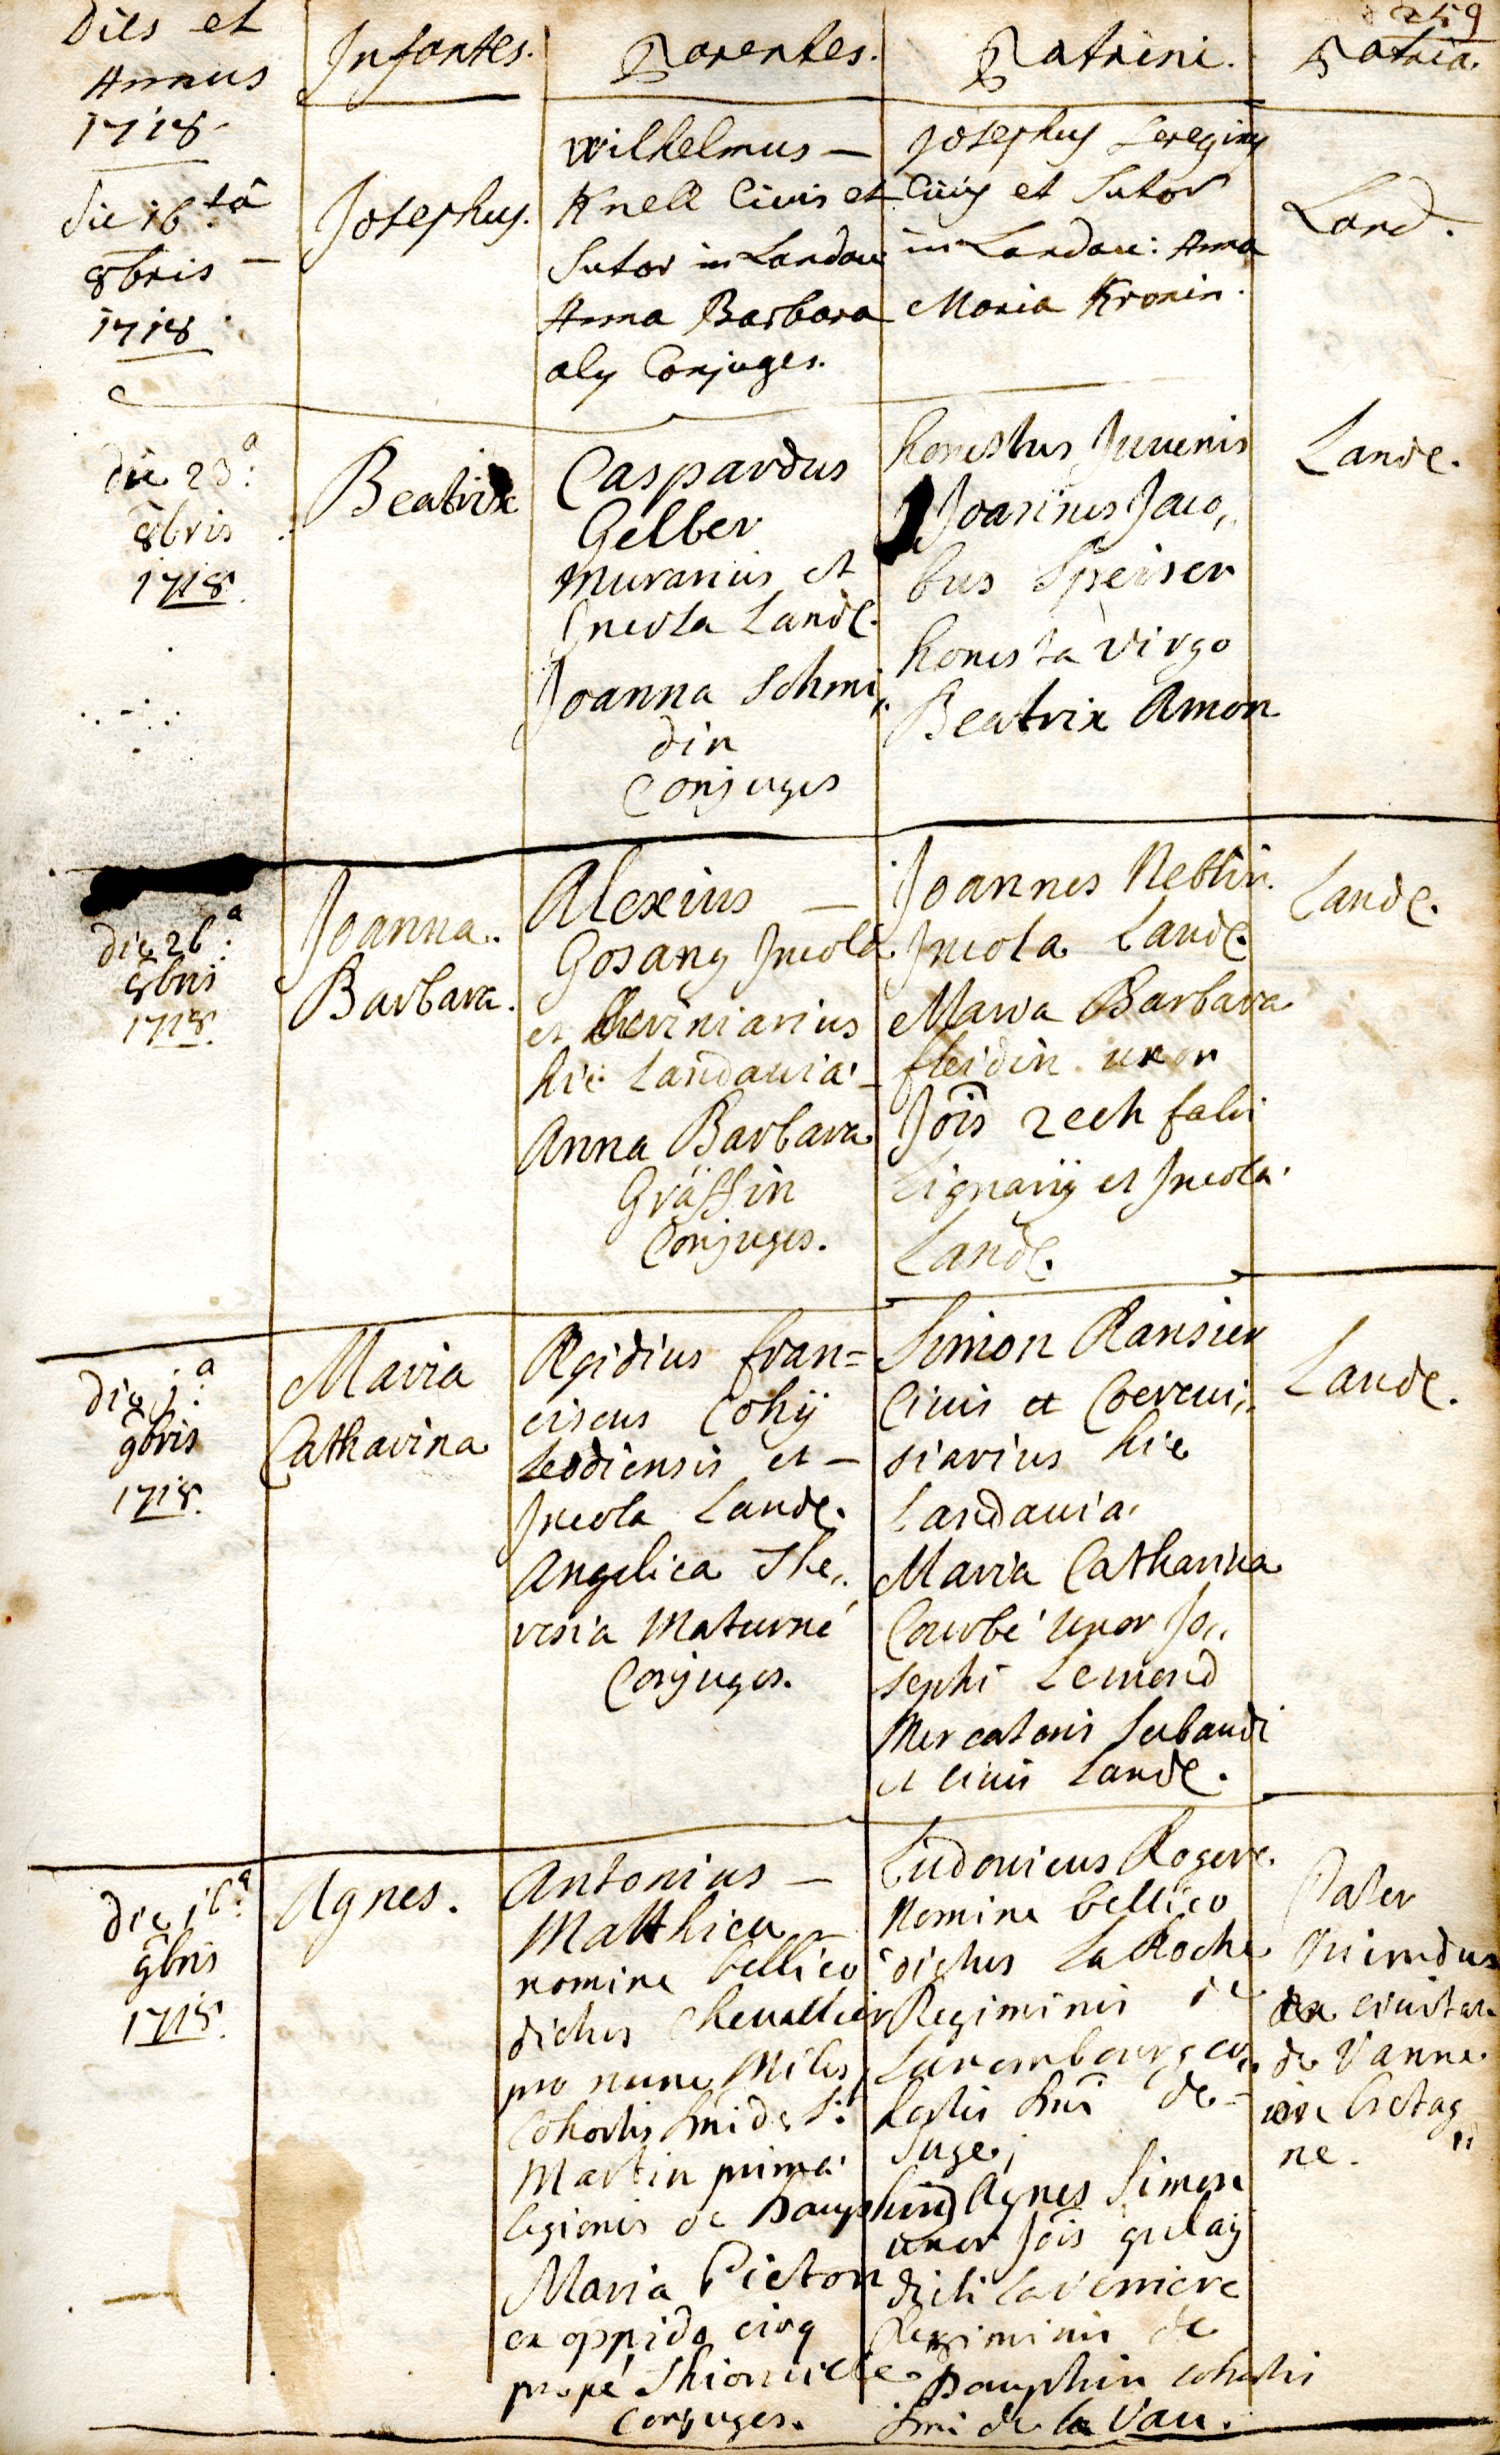 259
Dies et
Annus
1718
Infantes.
Parentes.
Patrini.
Patria.
die 16ta
8bris
1718
Josephus.
Wilhelmus —
Knell Civis et
Sutor in Landau
Anna Barbara
Conjuges.
Josephus
Civis et Sutor
in Landau: Anna
Maria Kronin.
Land.
die 23a:
8bris
1718
Beatrix
Caspardus
Gelber
Murarius et
Incola Landę.
Joanna Schmi,,
din
Conjuges
honestus Juvenis
Joannes Jaco,,
bus Speiser
honesta virgo
Beatrix Amon
Landę.
die 26a:
8bris
1718
Joanna.
Barbara.
Alexius —
Gosang Incola
et
hic Landavia
Anna Barbara
Gräffin
Conjuges.
Joannes
Incola Landę.
Maria Barbara
uxor
Jois Zech fabri
Lignarij et Incola
Landę.
Landę.
die 1a:
9bris
1718
Maria
Catharina
Ægidius Fran=
ciscus Cohij
Leodiensis et —
Incola Landę.
Angelica The,,
resia Maturné
Conjuges.
Simon Ransier
Civis et Cerevi,,
siarius hic
Landavia.
Maria Catharina
Courbé uxor Jo,,
sephi Lemond
Mercatoris Sabaudi
et civis Landę.
Landę.
die 16a:
9bris
1718
Agnes.
Antonius —
Matthieu —
nomine bellico
dictus Chevallier
pro nunc Miles
Cohortis Dni de St
Martin prima
legionis de Dauphin
Maria Picton
ex oppido
propé Thionville
Conjuges.
Ludovicus Roger.
Nomine bellico
dictus La Roche
Regiminis de
Luxembourg co,,
hortis Dni de =
Suge;
Agnes Simon
uxor Jois
dicti Laverriere
Regiminis de
Dauphin cohortis
Dni de la Vau.
Pater
Oriundus
ex civitate
de Vanne
in Bretag,,
ne.